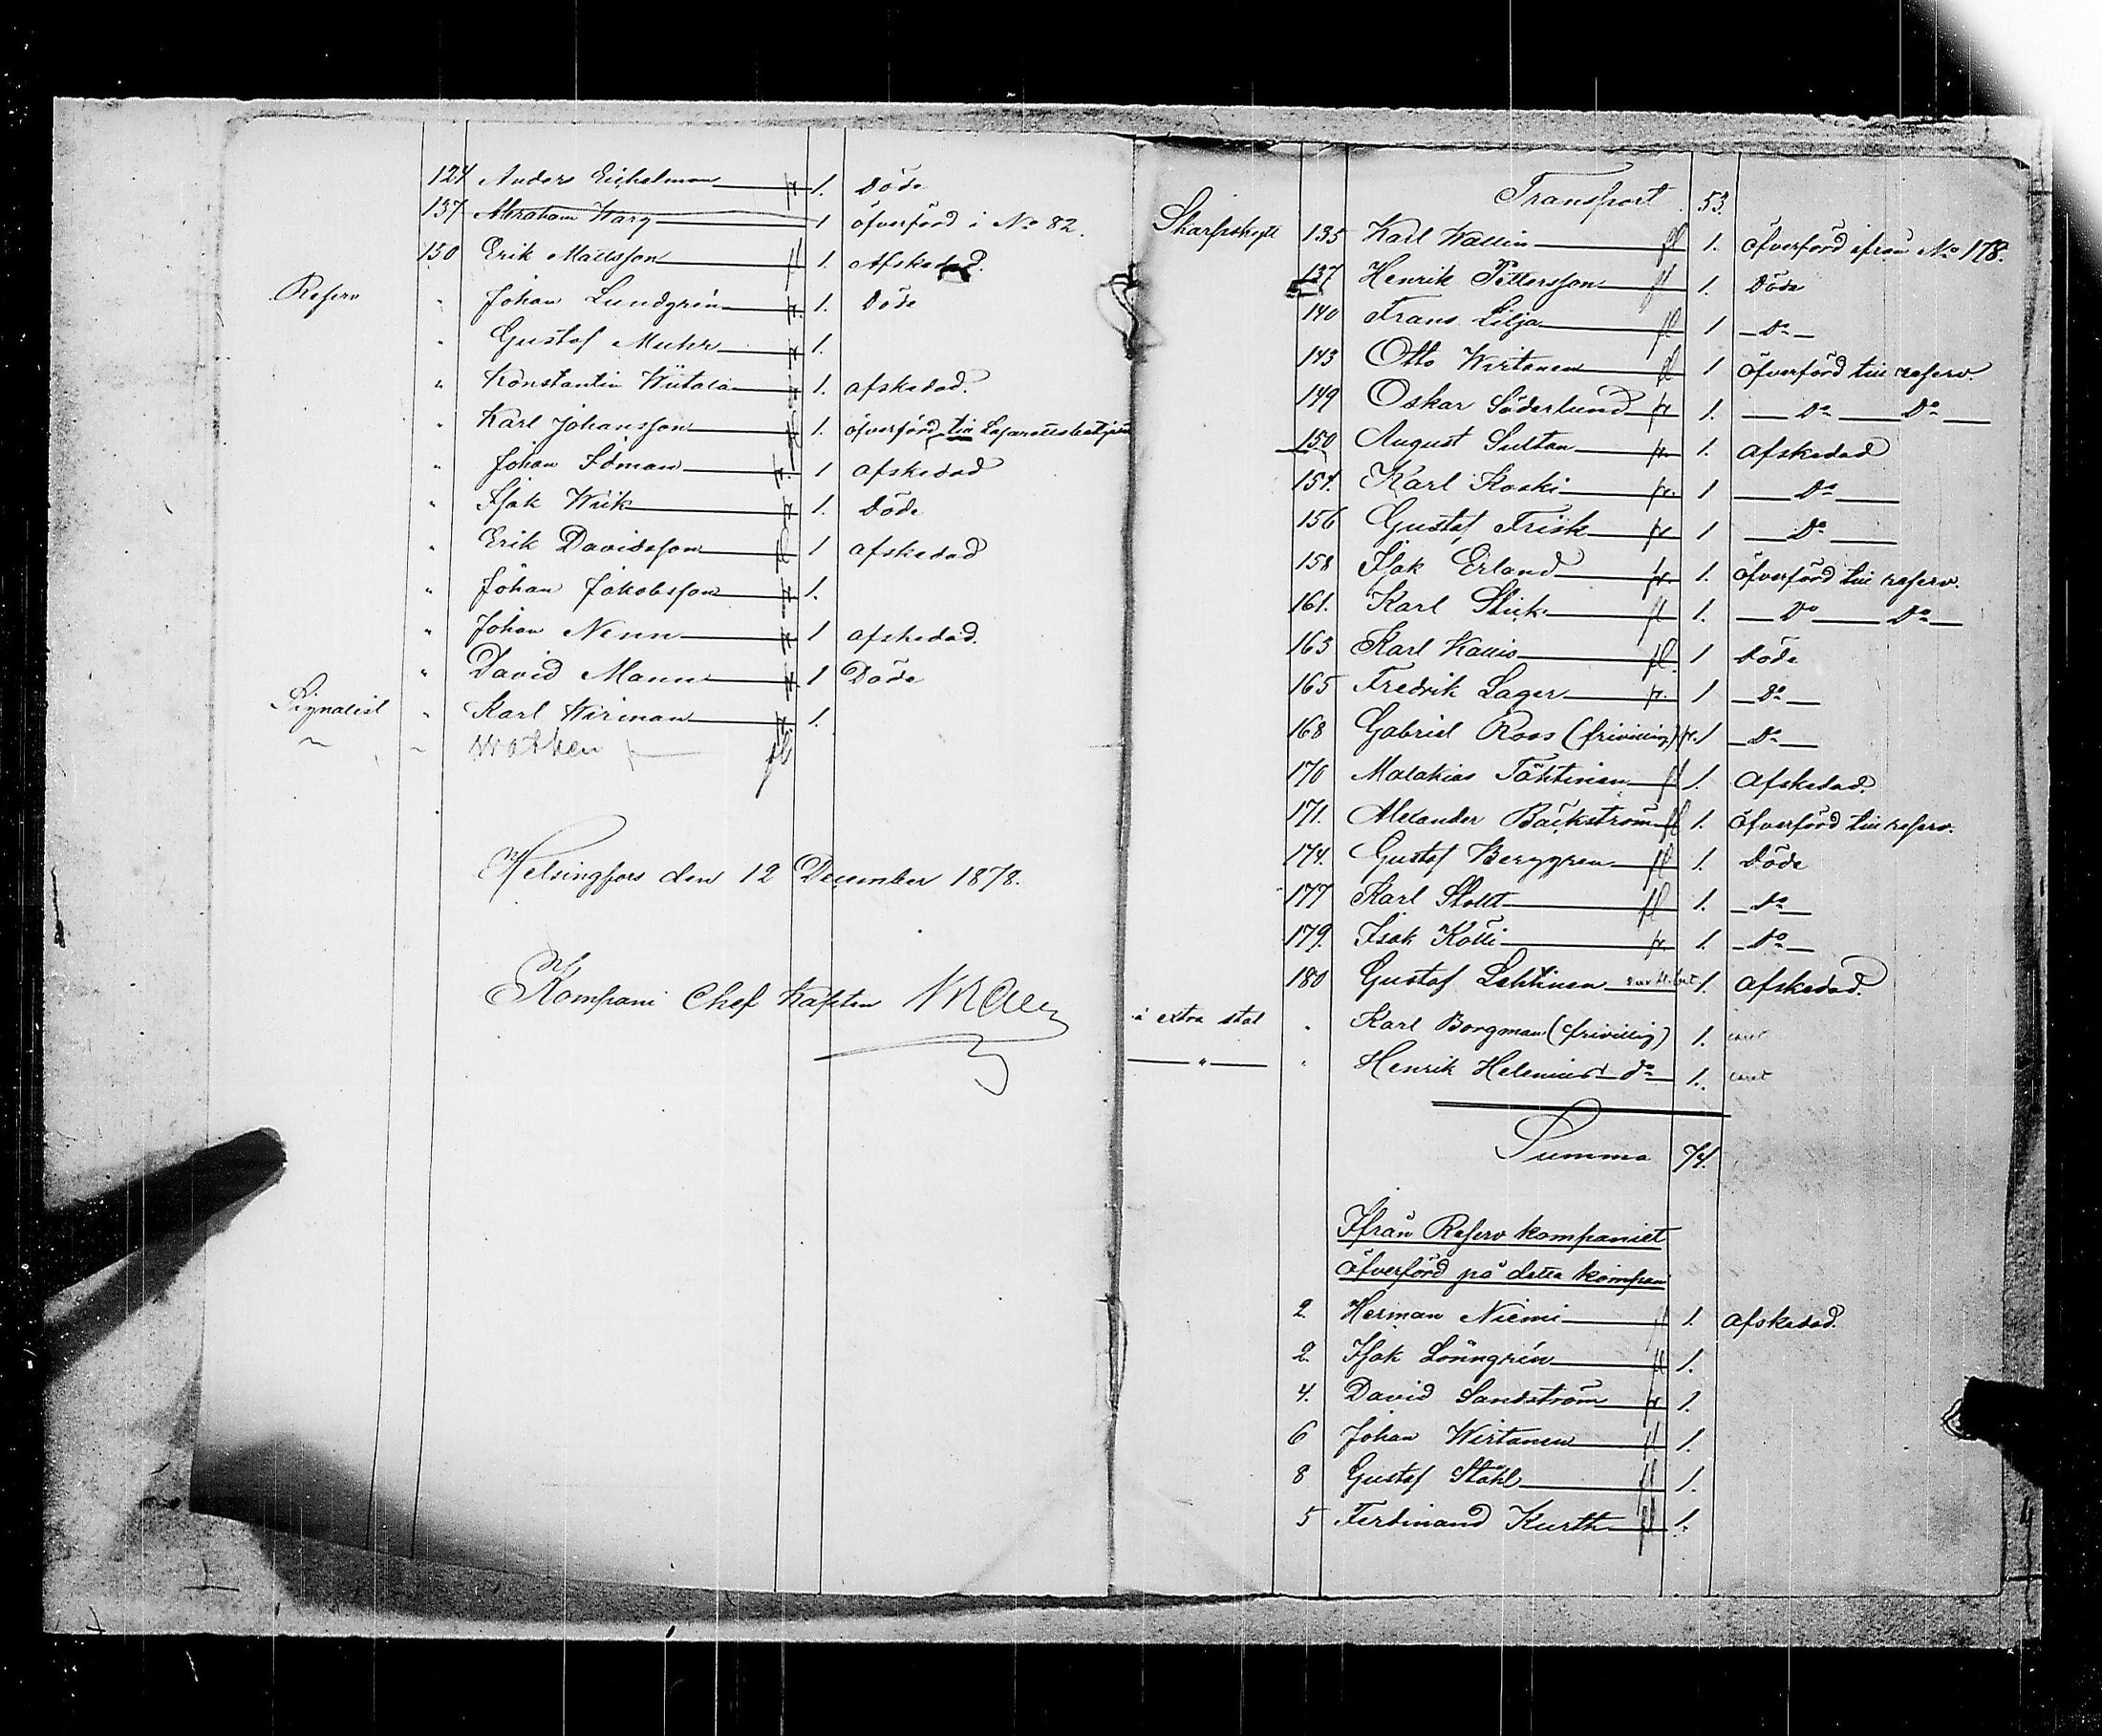 124 Anders Eichelman fr 1. Döde
137 Abraham Warg 1 öfverförd i No 82.
150 Erik Mattsson fl 1. Afskedad.
Reserv " Johan Lundgrén fr. 1. Döde
" Gustaf Muhr fr 1.
" Konstantin Wiitala 1. afskedad.
" Karl Johansson fr 1. öfverförd till
" Johan Idman fr. 1 afskedad
" Isak Wiik fr 1. Döde
" Erik Davidsson fl 1 afskedad
" Johan Jakobsson fr. 1.
" Johan Nenn fr 1 afskedad.
" David Mann fr. 1 Döde
Signalist " Karl Wirman fr. 1.
" " Mothen fl
Helsingfors den 12 December 1878.
Kompani Chef Kapten
Transport 53.
Skarpskytt 135 Karl Wallin fl 1. Öfverförd ifrån No 178.
137 Henrik Pettersson fl 1. Döde
140 Frans Lilja fl 1 — Do —
143 Otto Wirtanen fl 1 Öfverförd till reserv.
149 Oskar Söderlund fr 1. — Do — Do —
150 August Sultan fr. 1. Afskedad
154. Karl Koski fr. 1 — Do —
156 Gustaf Frisk fr 1 — Do —
158 Isak Erland fr. 1. Öfverförd till reserv.
161. Karl Slick fl 1. — Do — Do —
163 Karl Kallio fl 1 Döde
165 Fredrik Lager fr. 1 — Do —
168 Gabriel Roos (frivillig) fr. 1 — Do —
170 Malakias Tähtinen fl 1. Afskedad.
171. Alexander Bäckström fl 1. Öfverförd till reserv.
174. Gustaf Berggren fl 1. Döde
177 Karl Stolt fl 1. — Do —
179. Isak Kölli fr. 1. — Do —
180 Gustaf Lehtinen 1. Afskedad.
i extra stat " Karl Borgman (frivillig) 1.
— " — " Henrik Helenius — do — 1.
Summa 74.
Ifrån Reserv kompaniet
öfverförd på detta kompani
2 Herman Niemi fl 1. Afskedad.
2. Isak Lönngrén fl 1.
4. David Sandström fr 1.
6 Johan Wirtanen fl 1.
8 Gustaf Ståhl fl 1.
5 Ferdinand Kurth fl 1.